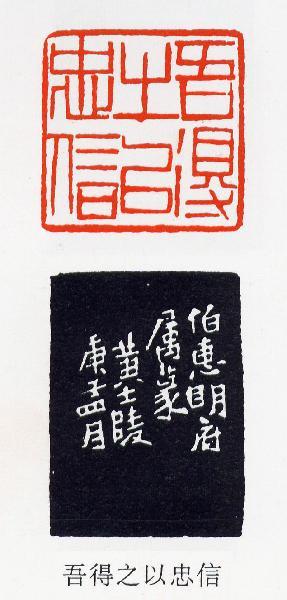 吾得
之以
忠信
伯惠明府
属篆
黄士陵
庚孟月
吾得之以忠信